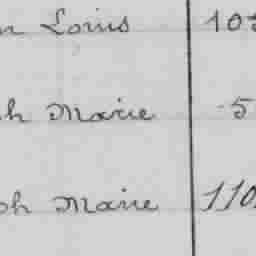 n Louis 105
h Marie 5
ph Marie 110